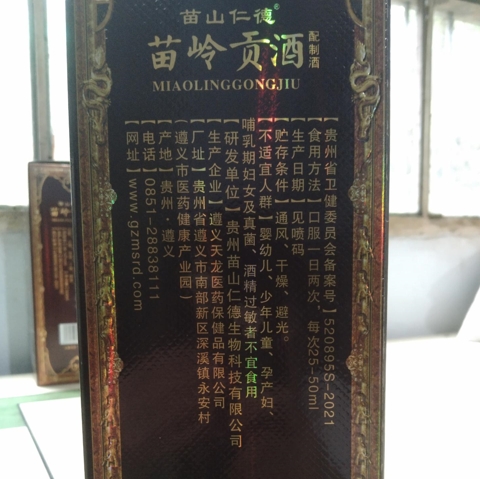 苗山仁德®
苗岭贡酒
配制酒
MIAOLINGGONGJIU
【贵州省卫健委员会备案号】520895S-2021
【食用方法】口服一日两次，每次25-50ml
【生产日期】见喷码
【贮存条件】通风、干燥、避光。
【不适宜人群】婴幼儿、少年儿童、孕产妇、
哺乳期妇女及真菌、酒精过敏者不宜食用
【研发单位】贵州苗山仁德生物科技有限公司
【生产企业】遵义天龙医药保健品有限公司
【厂址】贵州省遵义市南部新区深溪镇永安村
(遵义市医药健康产业园)
【产地】贵州·遵义
【电话】0851-28838111
【网址】www.gzmsrd.com